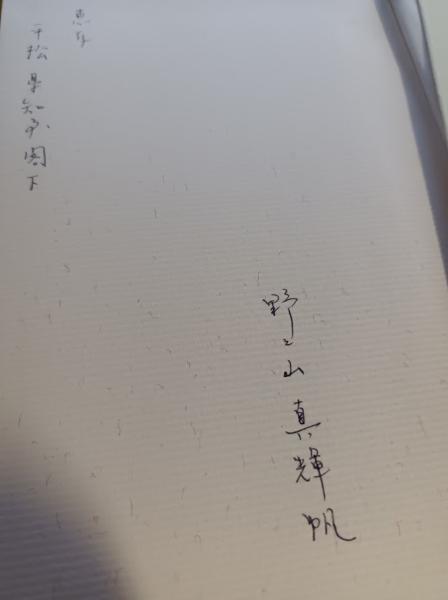 野々山真輝帆
恵存
平松県知事閣下